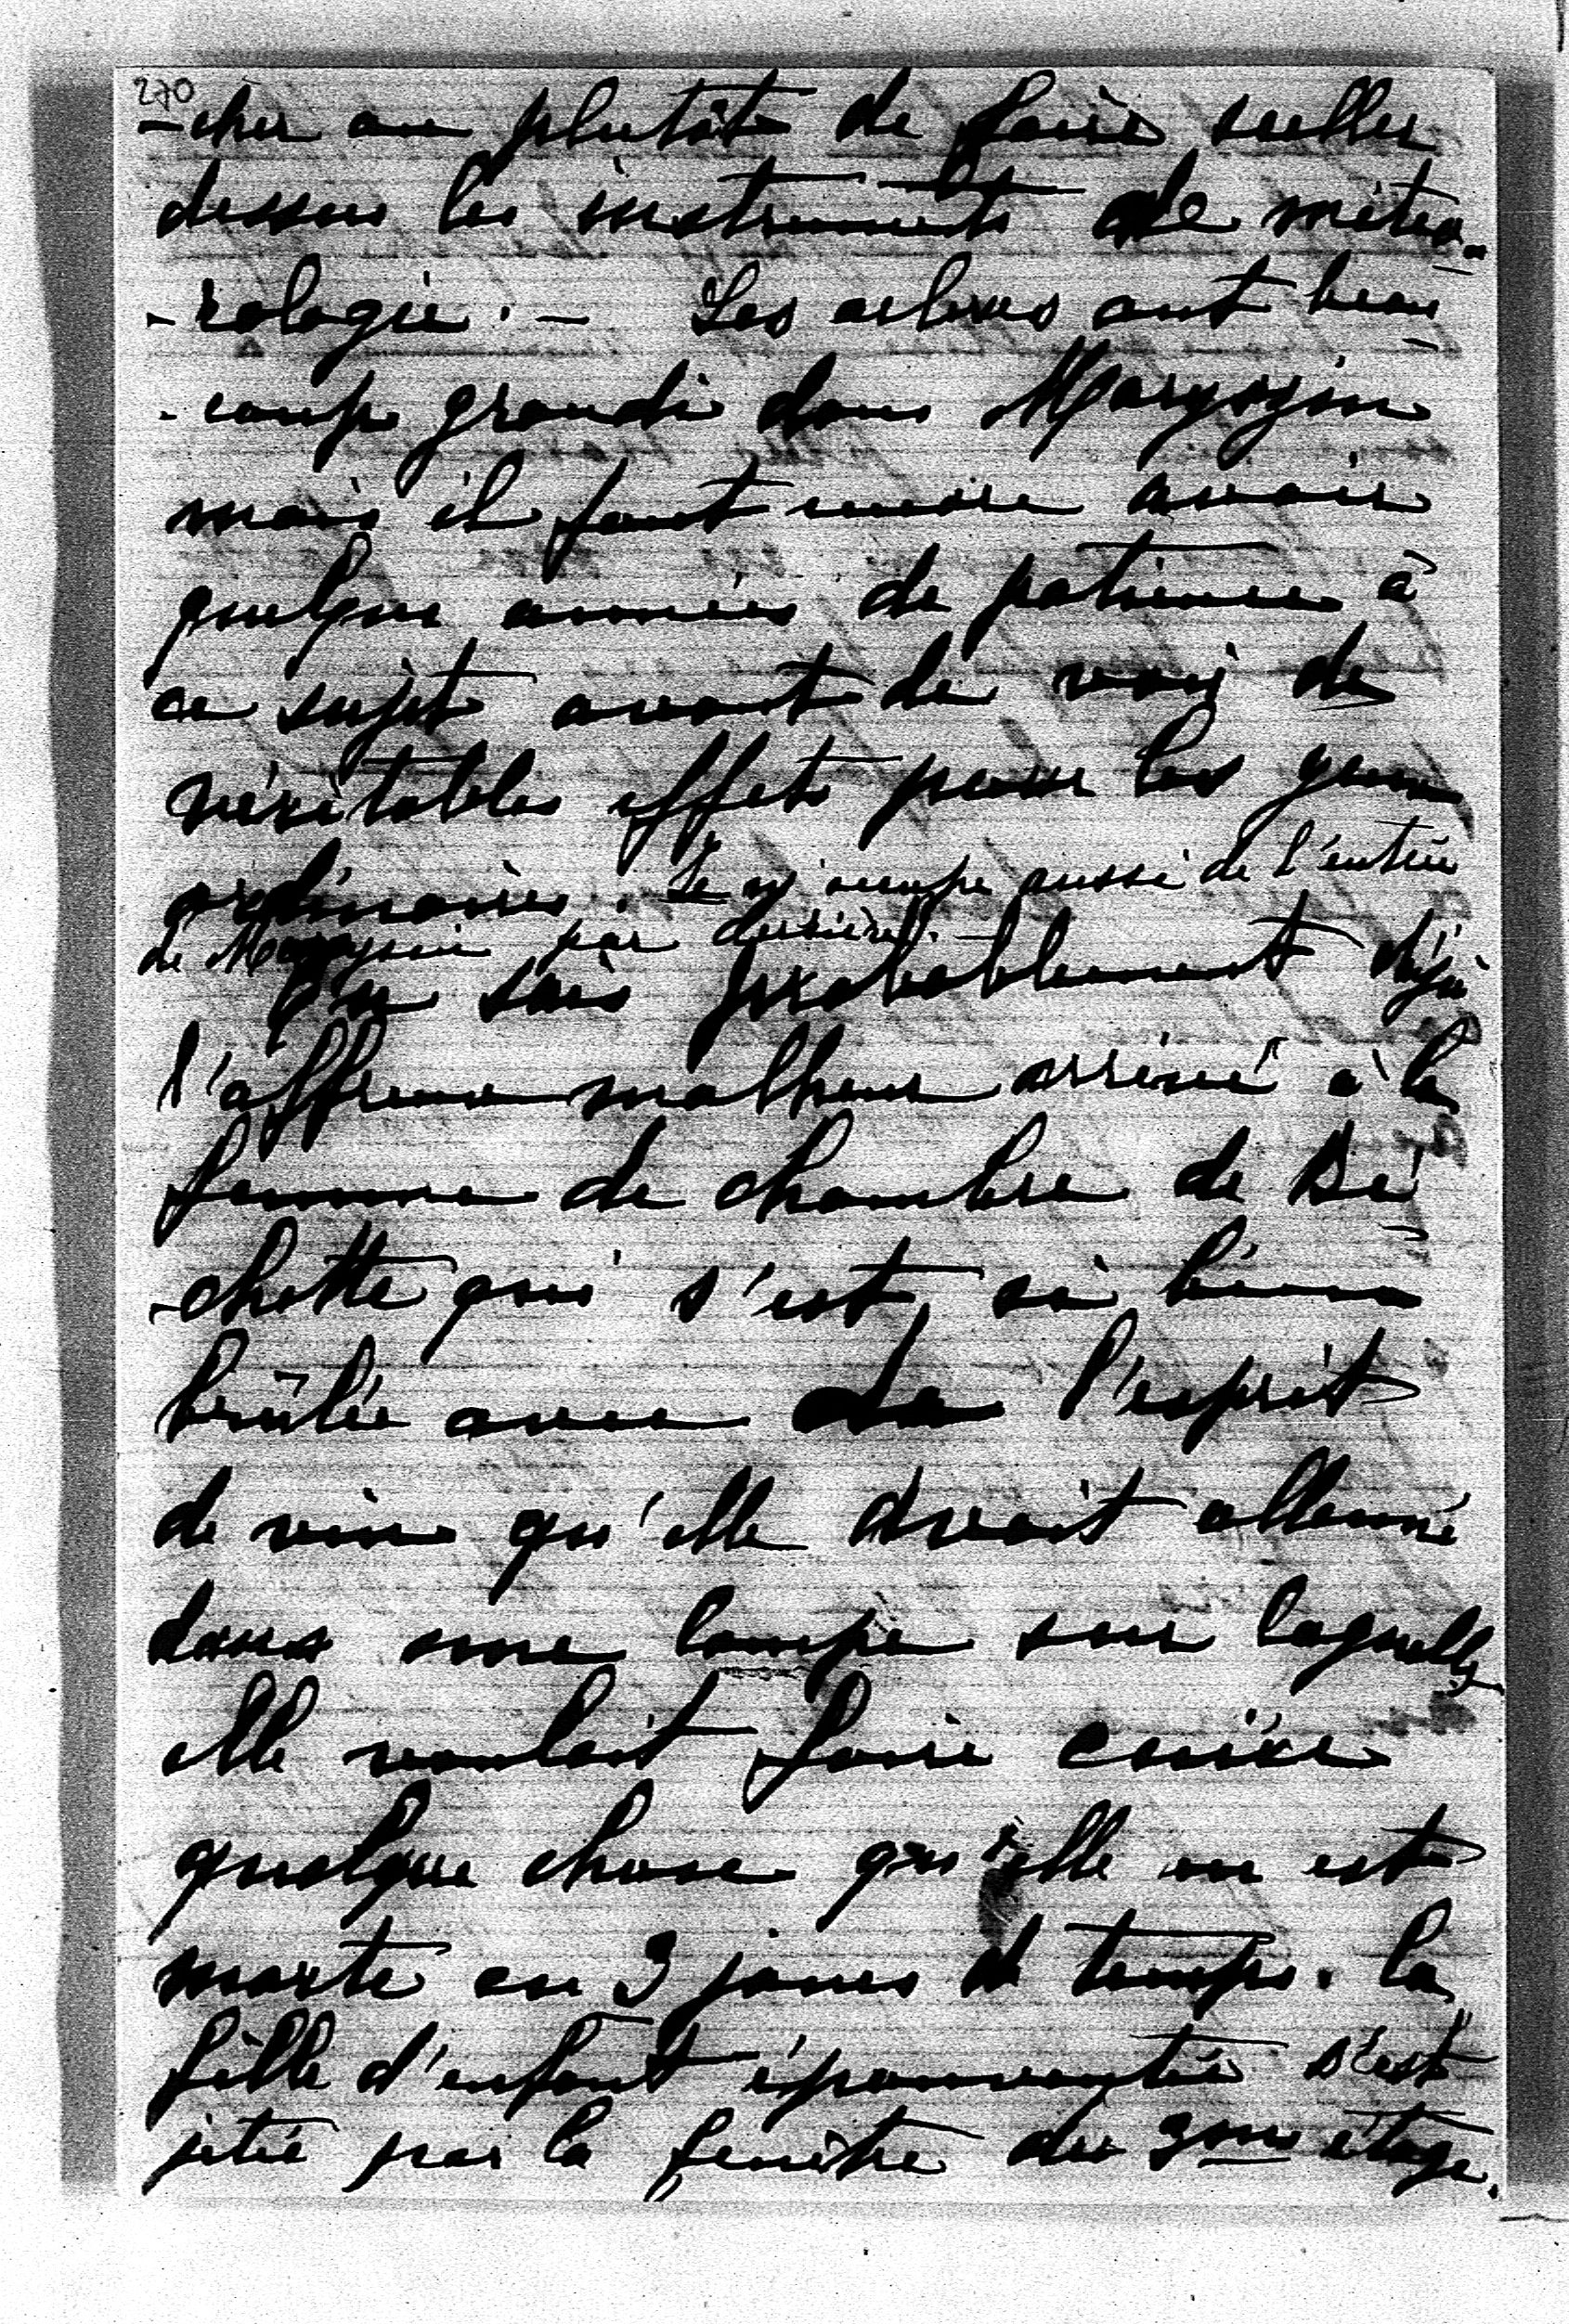 270
-cher ou plutôt de faire sceller
dessus les instruments de météo-
-rologie. - Les arbres ont beau-
-coup grandi dans
mais il faut encore avoir
quelques années de patience à
ce sujet avant de voir de
véritables effets pour les yeux
ordinaires. Je m'occupe aussi de l'entrée
de par derrière. -
Tu sais probablement déjà
l'affreux malheur arrivé à la
femme de chambre de Bé-
-chette qui s'est si bien
brûlée avec de l'esprit
de vin qu'elle avait allumé
dans une lampe sur laquelle
elle voulait faire cuire
quelque chose qu'elle en est
morte en 3 jours de temps. La
fille d'enfant épouvantée s'est
jetée par la fenêtre du 3me étage.